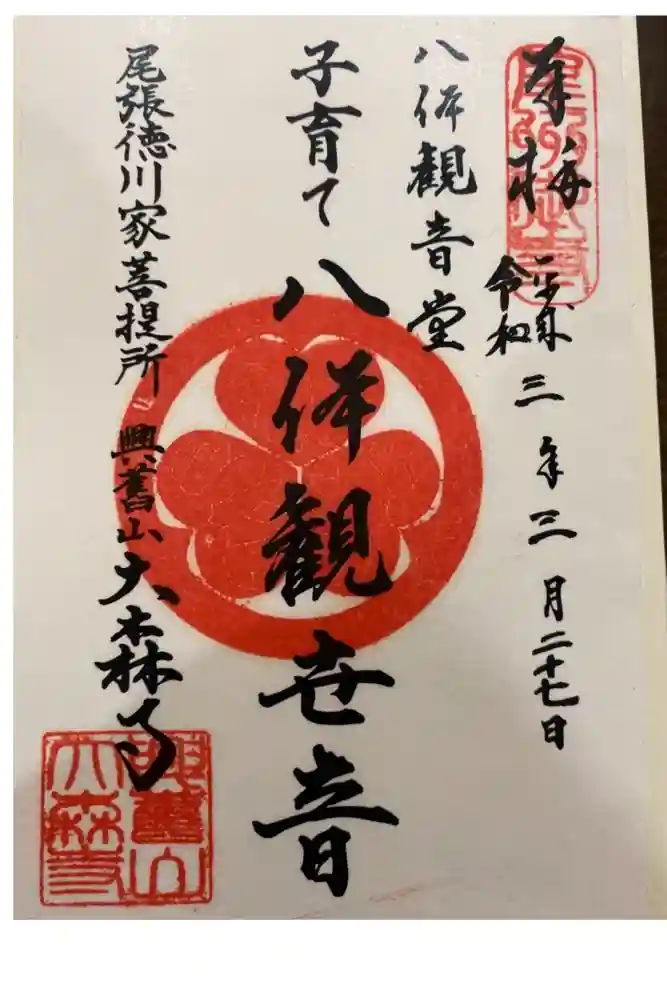 奉拝
令和三年三月二十七日
八体観音堂
子育て 八体観世音
尾張徳川家菩提所 興舊山 大森寺
興舊山
大森寺